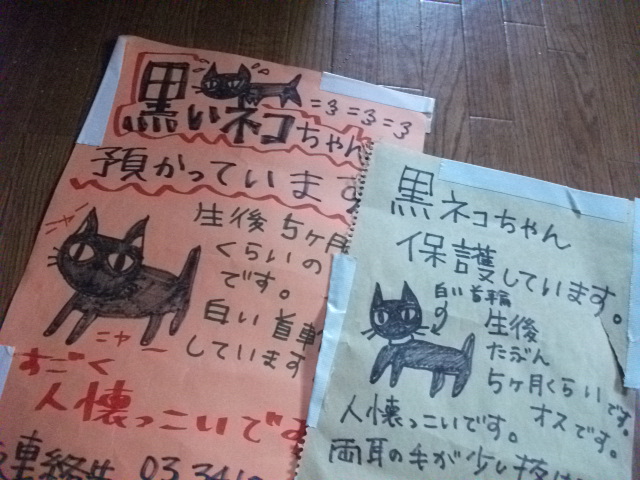 黒いネコちゃん
=3 =3 =3
預かっています
生後5ヶ月
くらいの
です。
白い首輪
しています
ニャー
すごく
人懐っこいです
連絡先 03 341
黒ネコちゃん
保護しています。
白い首輪
生後
たぶん
5ヶ月くらいです。
オスです。
人懐っこいです。
両耳の毛が少し抜け